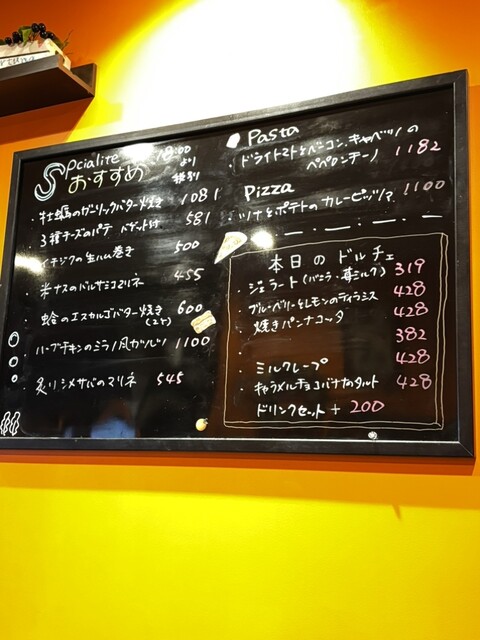 Socialite
18:00
より
おすすめ
・牡蠣のガーリックバター焼き 1081
・3種チーズのパテ バゲット付 581
・イチジクの生ハム巻き 500
・米ナスのバルサミコマリネ 455
・蛤のエスカルゴバター焼き 600
・ハーブチキンのミラノ風カツレツ 1100
・炙りシメサバのマリネ 545
Pasta
・ドライトマトとベーコン、キャベツの
ペペロンチーノ 1182
Pizza
・ツナとポテトのカレーピッツァ 1100
本日のドルチェ
・ジェラート(バニラ・苺ミルク) 319
・ブルーベリーとレモンのティラミス 428
・焼きパンナコッタ 428
・ 382
・ミルクレープ 428
・キャラメルチョコバナナのタルト 428
ドリンクセット + 200